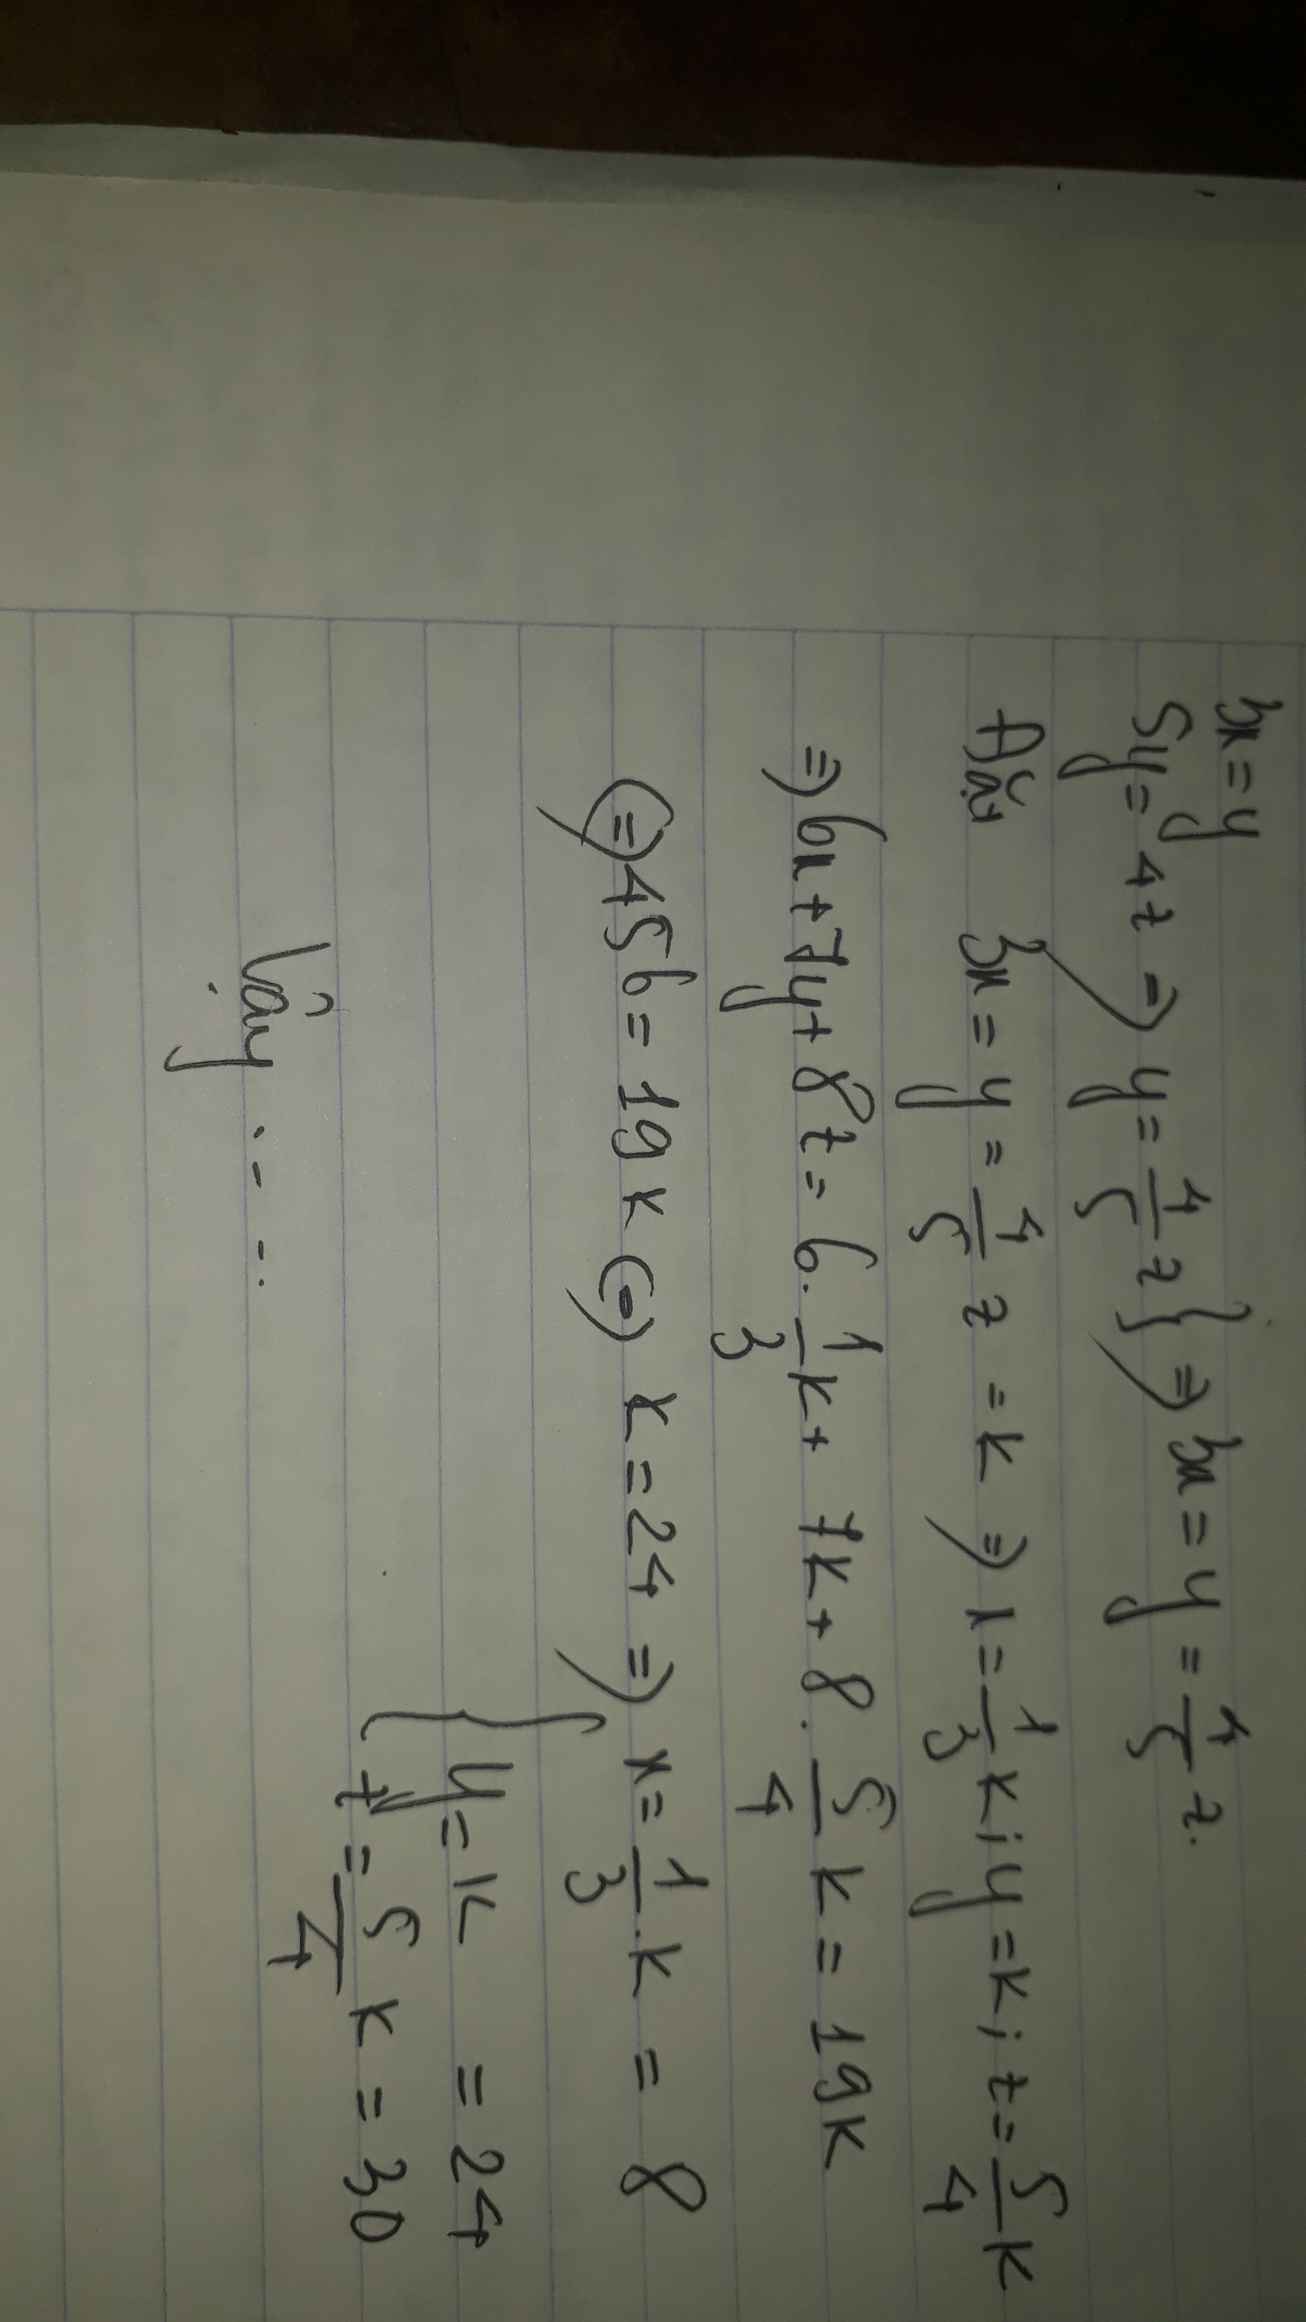 3x = y
5y = 4z => y = 4/5 z } => 3x = y = 4/5 z.
Đặt 3x = y = 4/5 z = k => x = 1/3 k; y = k; z = 5/4 k
=> 6x + 7y + 8z = 6. 1/3 k + 7k + 8. 5/4 k = 19k
(=) 456 = 19k (=) k = 24 => { x = 1/3 . k = 8
y = k = 24
z = 5/4 k = 30
Vậy .....